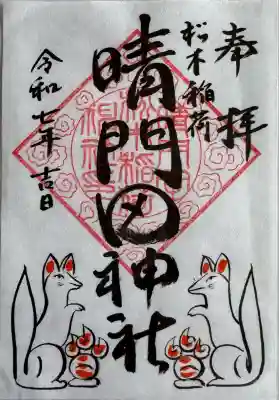 奉拝
桜木稲荷
晴門田神社
令和七年吉日